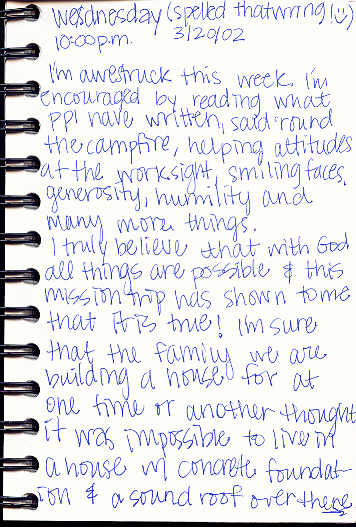 wesdnesday (spelled that wrring!☺)
10:00p.m. 3/20/02
I'm awestruck this week. I'm
encouraged by reading what
ppl have written, said 'round
the campfire, helping attitudes
at the worksight, smiling faces,
generosity, humility and
many more things.
I truly believe that with God
all things are possible & this
mission trip has shown to me
that it is true! I'm sure
that the family we are
building a house for at
one time or another thought
it was impossible to live in
a house w/ concrete foundat-
ion & a sound roof over there